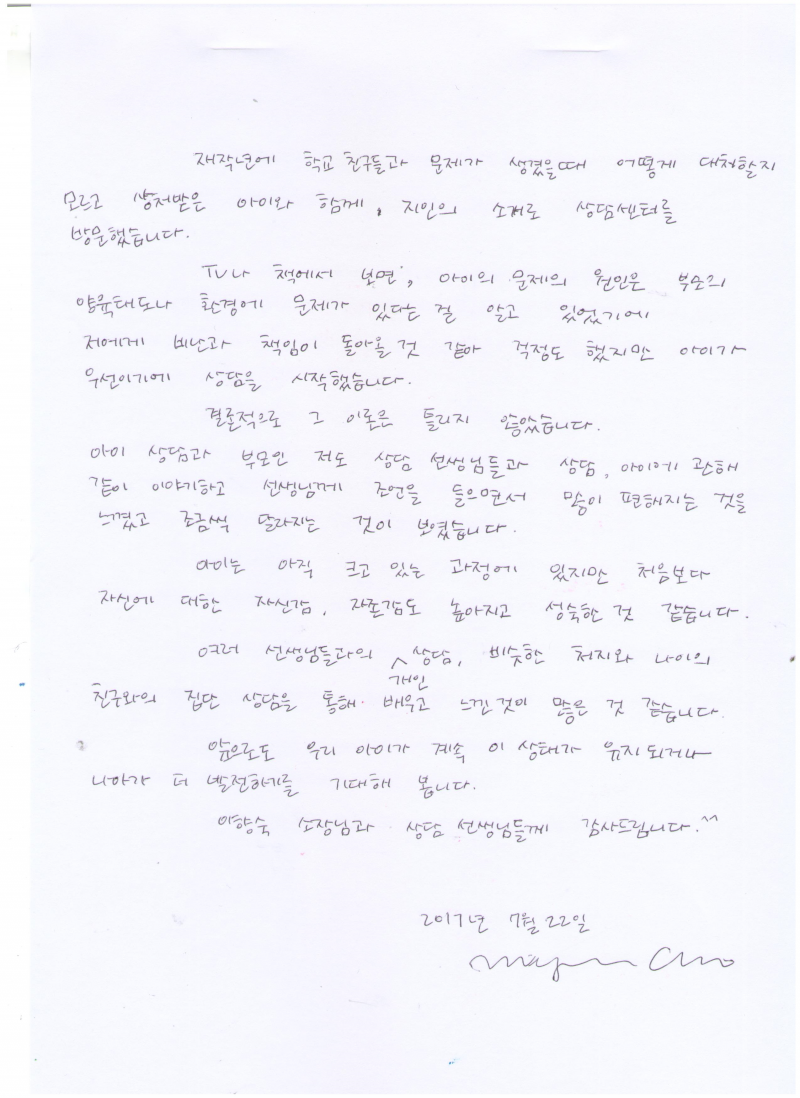 재작년에 학교 친구들과 문제가 생겼을때 어떻게 대처할지
모르고 상처받은 아이와 함께, 지인의 소개로 상담센터를
방문했습니다.
TV나 책에서 보면, 아이의 문제의 원인은 부모의
양육태도나 환경에 문제가 있다는 걸 알고 있었기에
저에게 비난과 책임이 돌아올 것 같아 걱정도 했지만 아이가
우선이기에 상담을 시작했습니다.
결론적으로 그 이론은 틀리지 않았습니다.
아이 상담과 부모인 저도 상담 선생님들과 상담, 아이에 관해
같이 이야기하고 선생님께 조언을 들으면서 맘이 편해지는 것을
느꼈고 조금씩 달라지는 것이 보였습니다.
아이는 아직 크고 있는 과정에 있지만 처음보다
자신에 대한 자신감, 자존감도 높아지고 성숙한 것 같습니다.
여러 선생님들과의 개인 상담, 비슷한 처지와 나이의
친구와의 집단 상담을 통해 배우고 느낀것이 많은 것 같습니다.
앞으로도 우리 아이가 계속 이 상태가 유지되거나
나아가 더 발전하기를 기대해 봅니다.
이향숙 소장님과 상담 선생님들께 감사드립니다.^^
2017년 7월 22일